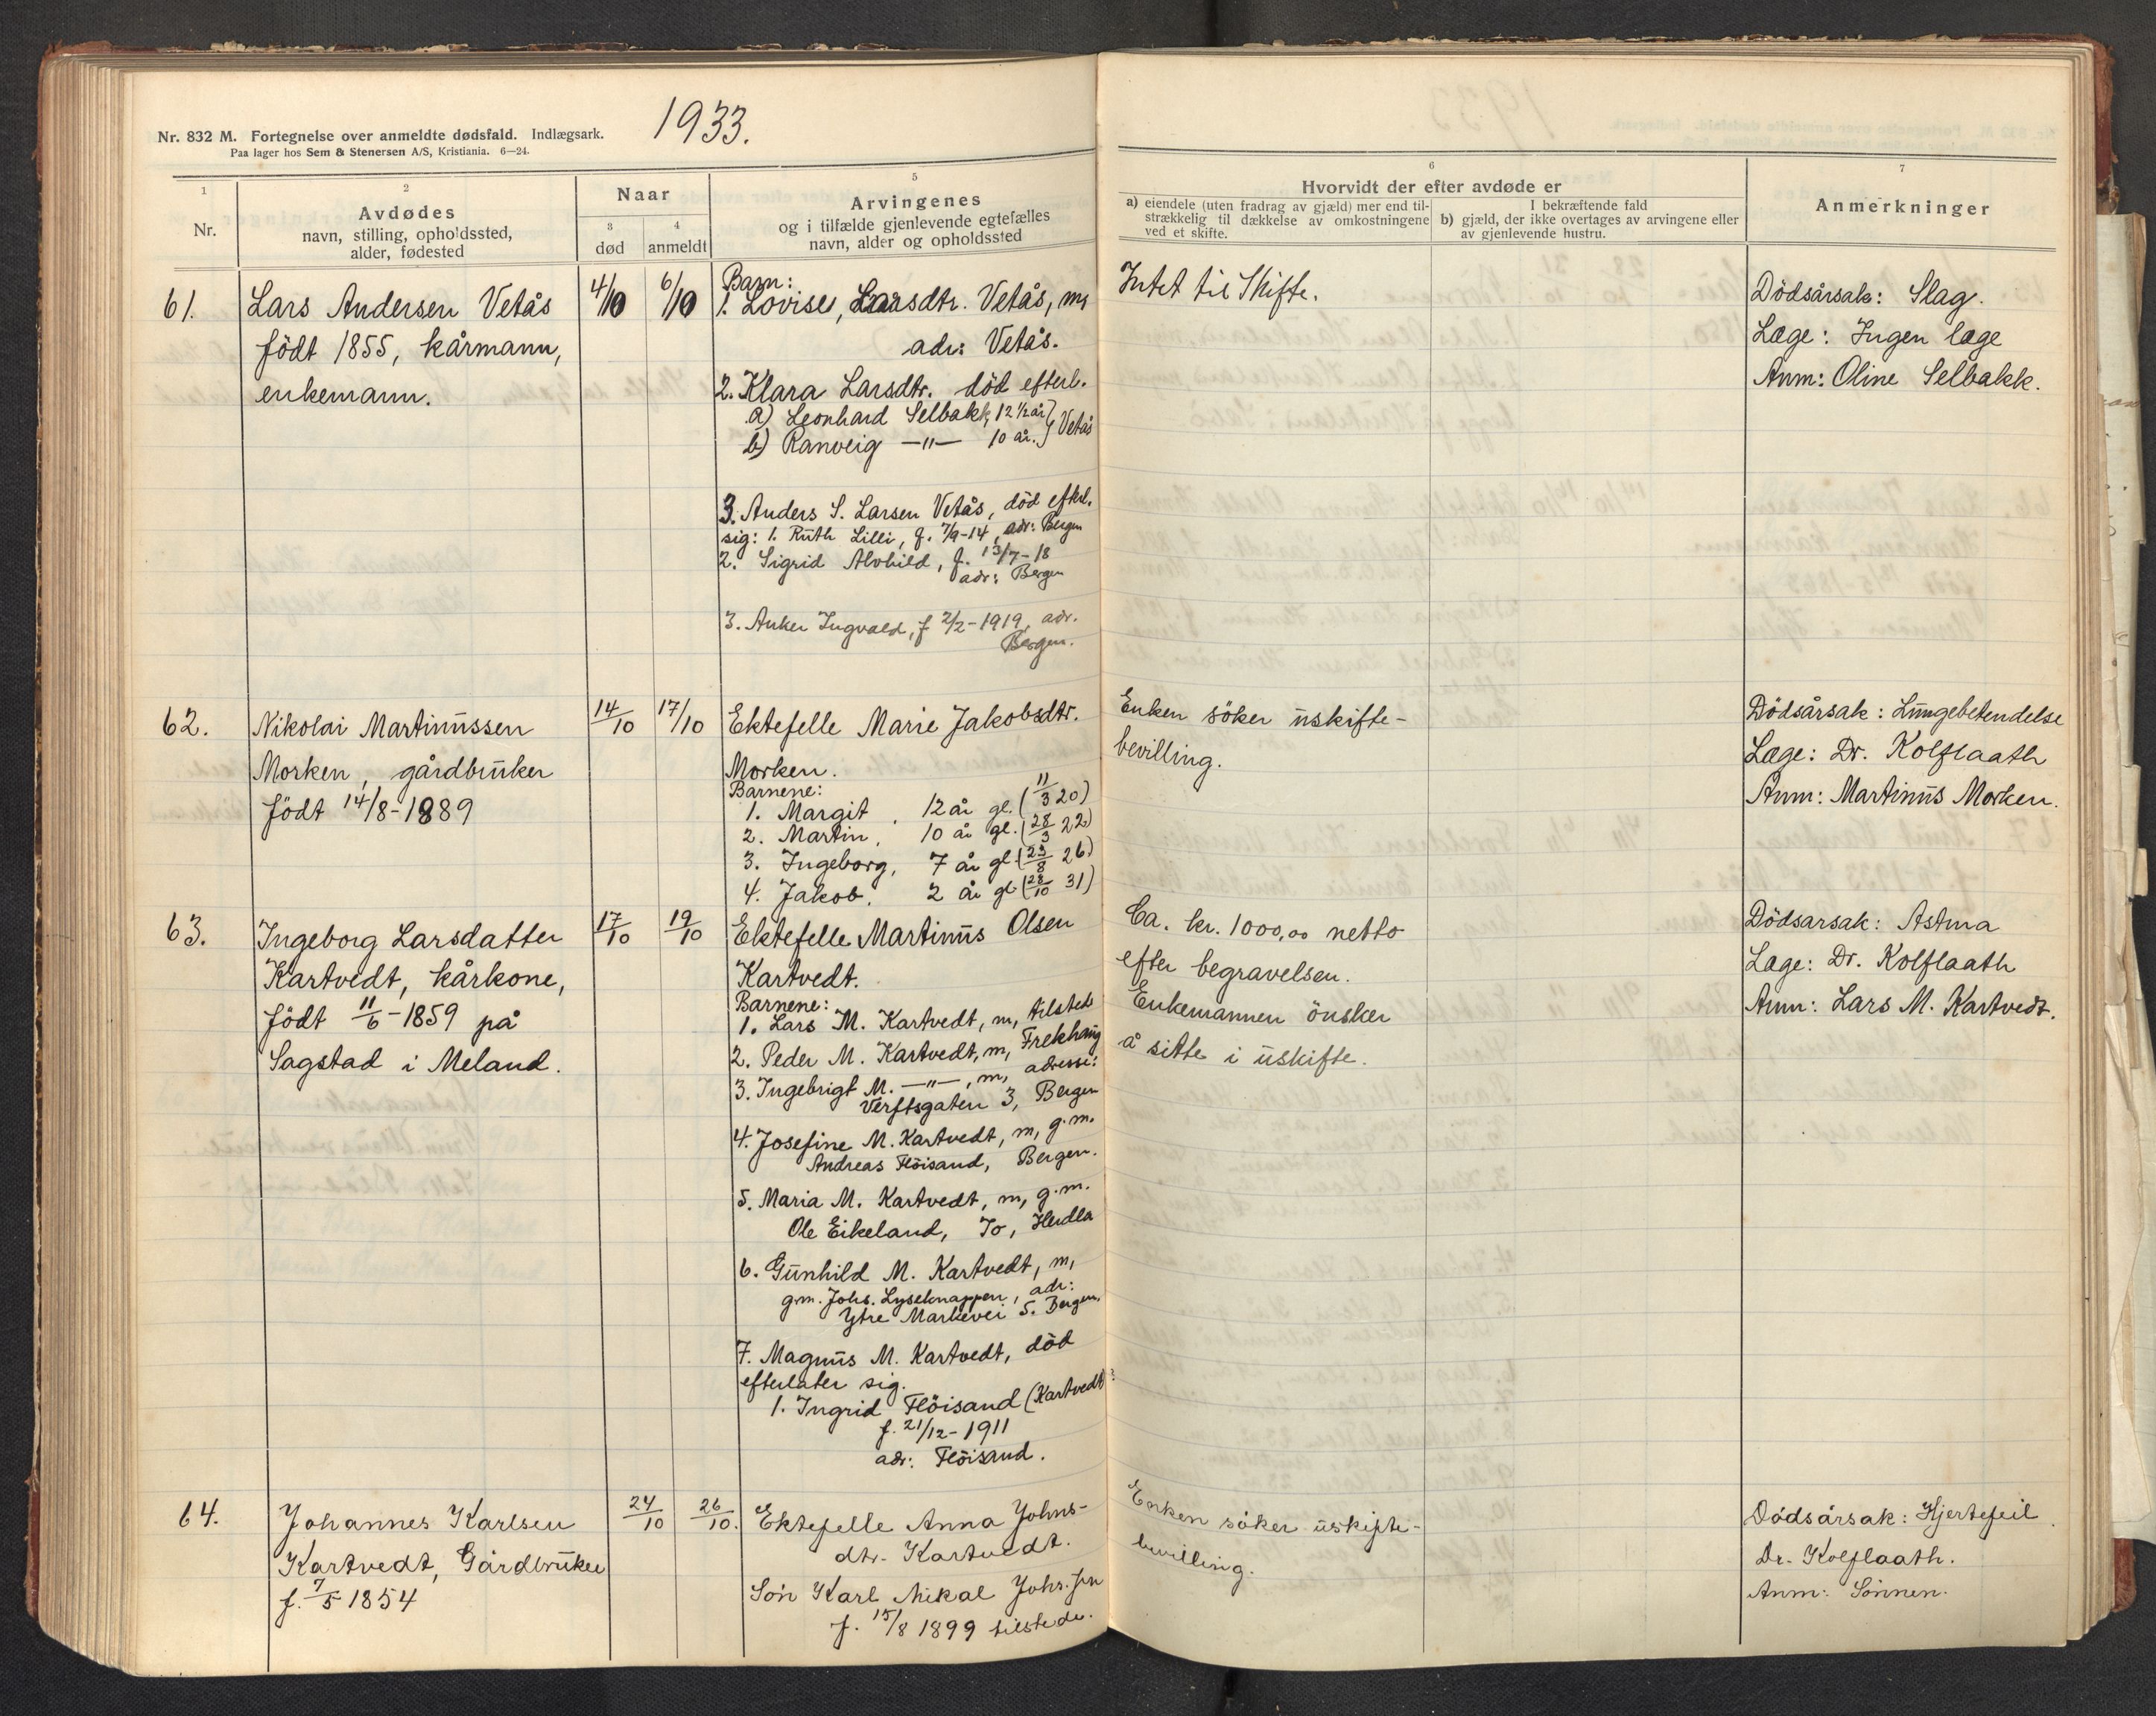 1933.
Nr. 832 M. Fortegnelse over anmeldte dødsfald. Indlægsark.
Paa lager hos Sem & Stenersen A/S, Kristiania. 6—24.
1
Nr.
2
Avdødes
navn, stilling, opholdssted,
alder, fødested
Naar
3
død
4
anmeldt
5
Arvingenes
og i tilfælde gjenlevende egtefælles
navn, alder og opholdssted
6
Hvorvidt der efter avdøde er
a) eiendele (uten fradrag av gjæld) mer end til-
strækkelig til dækkelse av omkostningene
ved et skifte.
I bekræftende fald
b) gjæld, der ikke overtages av arvingene eller
av gjenlevende hustru.
7
Anmerkninger
61.
Lars Andersen Vetås
født 1855, kårmann,
enkemann.
4/10
6/10
Barn:
1. Lovise, Larsdtr. Vetås, m,
adr: Vetås.
2. Klara Larsdtr. död efterl.
a) Leonhard Selbakk, 12 1/2 år } Vetås
b) Ranveig —"— 10 år.
3. Anders S. Larsen Vetås, död efterl.
sig: 1. Ruth Lilli, f. 7/9-14, adr: Bergen
2. Sigrid Alvhild, f. 13/7-18
adr: Bergen
3. Anker Ingvald, f 2/2-1919, adr.
Bergen.
Intet til Skifte.
Dödsårsak: Slag.
Læge: Ingen læge
Anm: Oline Selbakk.
62.
Nikolai Martinussen
Morken, gårdbruker
født 14/8-1889
14/10
17/10
Ektefelle Marie Jakobsdtr.
Morken.
Barnene:
1. Margit, 12 år gl. (11/3 20)
2. Martin, 10 år gl. (28/3 22)
3. Ingeborg, 7 år gl. (23/8 26)
4. Jakob, 2 år gl. (28/10 31)
Enken söker uskifte-
bevilling.
Dödsårsak: Lungebetendelse
Læge: Dr. Kolflaath
Anm: Martinus Morken.
63.
Ingeborg Larsdatter
Kartvedt, kårkone,
født 11/6-1859 på
Sagstad i Meland.
17/10
19/10
Ektefelle Martinus Olsen
Kartvedt.
Barnene:
1. Lars M. Kartvedt, m, tilstede
2. Peder M. Kartvedt, m, Frekhaug
3. Ingebrigt M. —"—, m, adresse:
Verftsgaten 3, Bergen
4. Josefine M. Kartvedt, m, g.m.
Andreas Flöisand, Bergen.
5. Maria M. Kartvedt, m, g.m.
Ole Eikeland, To, Herdla
6. Gunhild M. Kartvedt, m,
g.m. Johs. Lyseknappen, adr:
Ytre Markevei 5. Bergen.
7. Magnus M. Kartvedt, död
efterlater sig.
1. Ingrid Flöisand (Kartvedt)
f. 21/12-1911
adr: Flöisand.
Ca. kr. 1000,00 netto
efter begravelsen.
Enkemannen önsker
å sitte i uskifte.
Dödsarsak: Astma
Læge: Dr. Kolflaath
Anm: Lars M. Kartvedt.
64.
Johannes Karlsen
Kartvedt, Gårdbruker
f. 7/5 1854
24/10
26/10.
Ektefelle Anna Johns-
dtr. Kartvedt.
Sön Karl Mikal Johs.sen
f. 15/8 1899 tilstede.
Enken söker uskifte-
bevilling.
Dödsårsak: Hjertefeil
Dr. Kolflaath.
Anm: Sönnen.